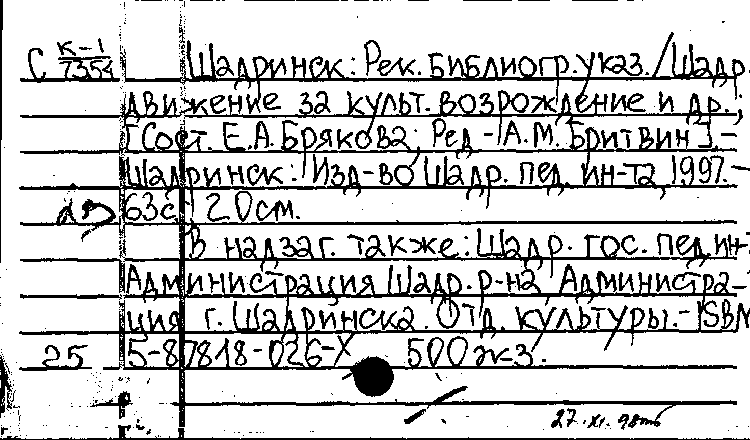 С К-1/7354 Шадринск: Рек. библиогр. указ. / Шадр.
движение за культ. возрождение и др.;
[Сост. Е.А. Брякова; Ред - А.М. Бритвин]. -
Шадринск: Изд-во Шадр. пед. ин-та, 1997. -
63с; 20см.
В надзаг. также: Шадр. гос. пед. ин-т,
Администрация Шадр. р-на, Администра-
ция г. Шадринска. Отд. культуры. - ISBN
25 5-87818-026-Х 500 экз.
27.XI.98